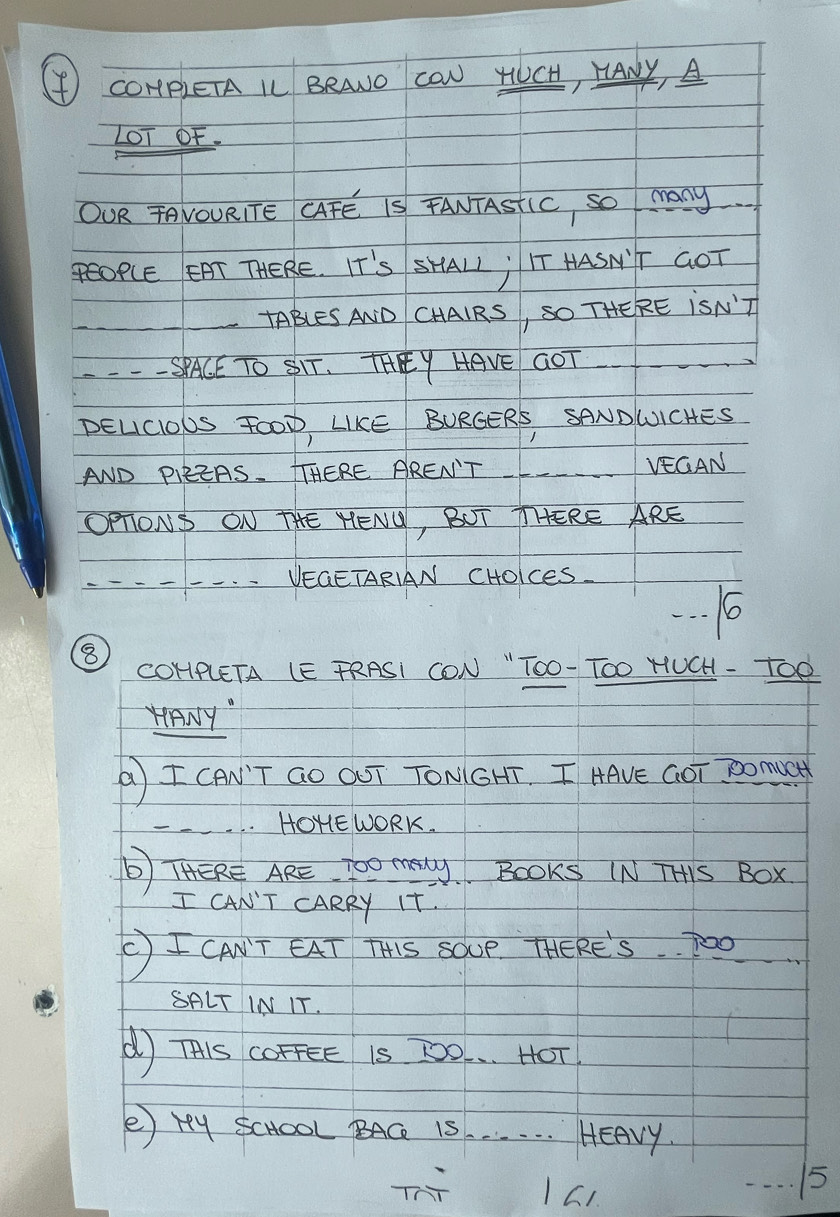 7 COMPLETA IL BRANO CON MUCH, MANY, A
LOT OF.
OUR FAVOURITE CAFÉ IS FANTASTIC, SO many ...
PEOPLE EAT THERE. IT'S SMALL; IT HASN'T GOT
_ _ _ _ _ _ _ TABLES AND CHAIRS, SO THERE ISN'T
_ _ _ _ SPACE TO SIT. THEY HAVE GOT _ _ _ _ _ _ _
DELICIOUS FOOD, LIKE BURGERS, SANDWICHES
AND PIZZAS. THERE AREN'T _ _ _ _ _ _ VEGAN
OPTIONS ON THE MENU, BUT THERE ARE
_ _ _ _ _ _ _ _ VEGETARIAN CHOICES.
.../6
8 COMPLETA LE FRASI CON "TOO - TOO MUCH - TOO
MANY"
a) I CAN'T GO OUT TONIGHT. I HAVE GOT TOO MUCH
_ _ _ ... HOMEWORK.
b) THERE ARE TOO MANY BOOKS IN THIS BOX.
I CAN'T CARRY IT.
c) I CAN'T EAT THIS SOUP. THERE'S .. TOO
SALT IN IT.
d) THIS COFFEE IS TOO ... HOT.
e) MY SCHOOL BAG IS ....... HEAVY.
..../5
TOT